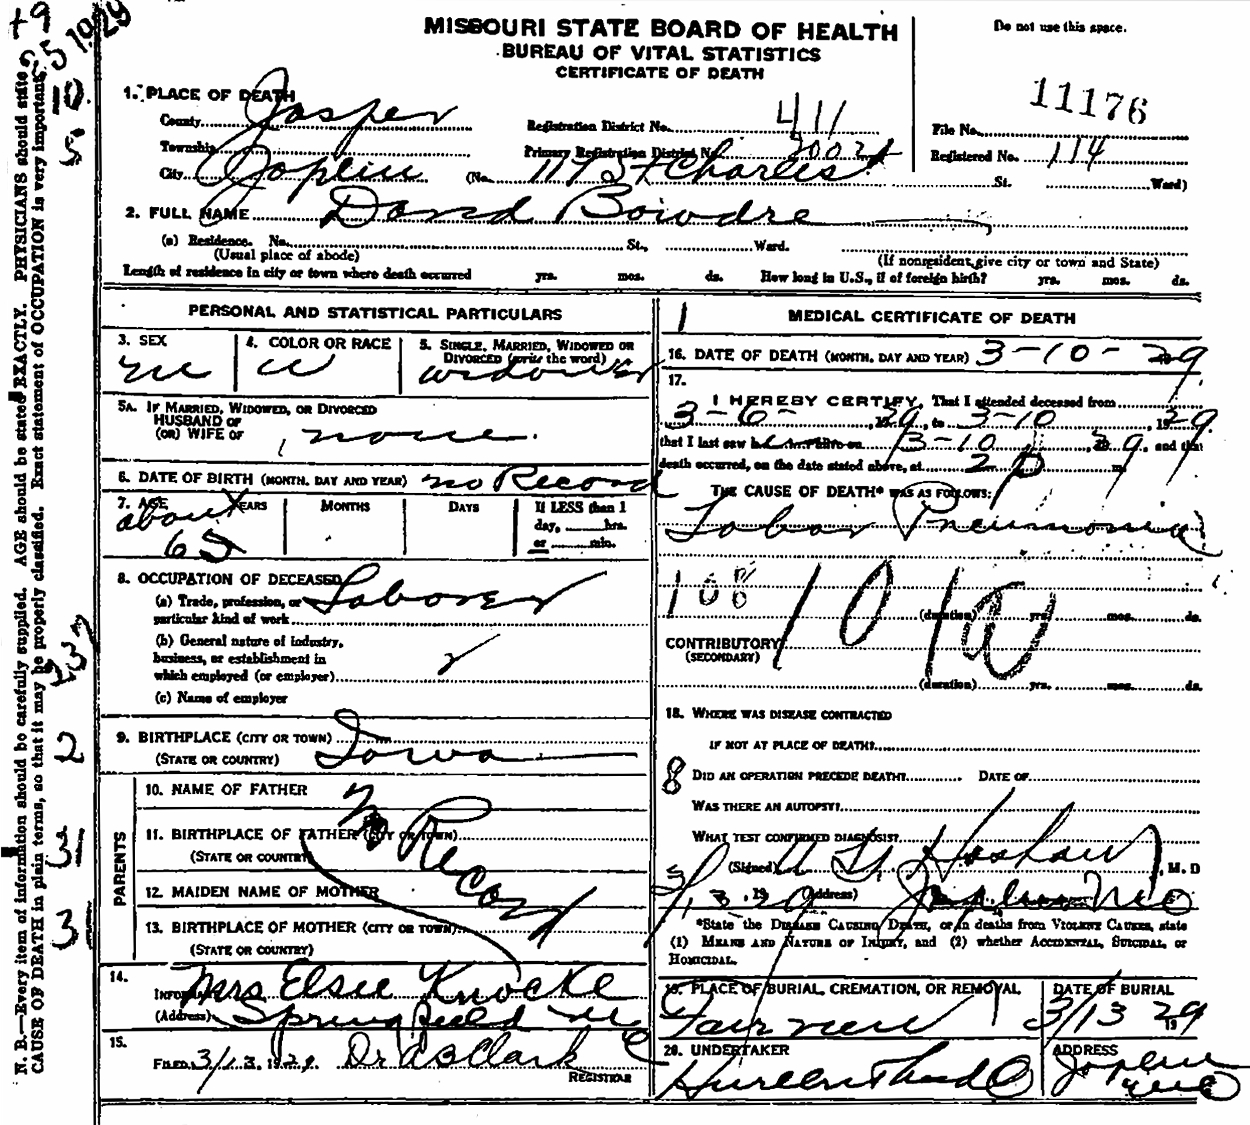 MISSOURI STATE BOARD OF HEALTH
BUREAU OF VITAL STATISTICS
CERTIFICATE OF DEATH
Do not use this space.
11176
1. PLACE OF DEATH
County Jasper
Registration District No. 411
File No.
Township
Primary Registration District No. 2002
Registered No. 114
City Joplin (No. 117 St Charles St. Ward)
2. FULL NAME David Bowdre
(a) Residence. No. St., Ward.
(Usual place of abode) (If nonresident, give city or town and State)
Length of residence in city or town where death occurred yrs. mos. ds. How long in U.S., if of foreign birth? yrs. mos. ds.
PERSONAL AND STATISTICAL PARTICULARS
3. SEX m
4. COLOR OR RACE w
5. SINGLE, MARRIED, WIDOWED OR DIVORCED (write the word) widower
5A. IF MARRIED, WIDOWED, OR DIVORCED
HUSBAND OF
(OR) WIFE OF none.
6. DATE OF BIRTH (MONTH, DAY AND YEAR) no Record
7. AGE YEARS MONTHS DAYS If LESS than 1 day, hrs. or min.
about 65
8. OCCUPATION OF DECEASED
(a) Trade, profession, or particular kind of work Laborer
(b) General nature of industry,
business, or establishment in
which employed (or employer)
(c) Name of employer
9. BIRTHPLACE (CITY OR TOWN)
(STATE OR COUNTRY) Iowa
PARENTS
10. NAME OF FATHER
11. BIRTHPLACE OF FATHER (CITY OR TOWN)
(STATE OR COUNTRY)
12. MAIDEN NAME OF MOTHER
13. BIRTHPLACE OF MOTHER (CITY OR TOWN)
(STATE OR COUNTRY)
No Record
14.
INFORMANT Mrs Elsie Knocke
(Address) Springfield Mo
15.
FILED 3/13, 1929. Dr A B Clark
REGISTRAR
MEDICAL CERTIFICATE OF DEATH
16. DATE OF DEATH (MONTH, DAY AND YEAR) 3-10-29
17.
I HEREBY CERTIFY, That I attended deceased from
3-6-, 29, to 3-10, 1929
that I last saw h alive on 3-10, 29, and that
death occurred, on the date stated above, at 2 P m.
THE CAUSE OF DEATH* WAS AS FOLLOWS:
Lobar Pneumonia
108 101a
(duration) yrs. mos. ds.
CONTRIBUTORY
(SECONDARY)
(duration) yrs. mos. ds.
18. WHERE WAS DISEASE CONTRACTED
IF NOT AT PLACE OF DEATH?
8 DID AN OPERATION PRECEDE DEATH? DATE OF
WAS THERE AN AUTOPSY?
WHAT TEST CONFIRMED DIAGNOSIS?
(Signed) , M. D
, 19 (Address) Joplin Mo
*State the DISEASE CAUSING DEATH, or in deaths from VIOLENT CAUSES, state
(1) MEANS AND NATURE OF INJURY, and (2) whether ACCIDENTAL, SUICIDAL, or
HOMICIDAL.
19. PLACE OF BURIAL, CREMATION, OR REMOVAL DATE OF BURIAL
Fairview 3/13 1929
20. UNDERTAKER ADDRESS
Joplin Mo
N. B.—Every item of information should be carefully supplied. AGE should be stated EXACTLY. PHYSICIANS should state
CAUSE OF DEATH in plain terms, so that it may be properly classified. Exact statement of OCCUPATION is very important.